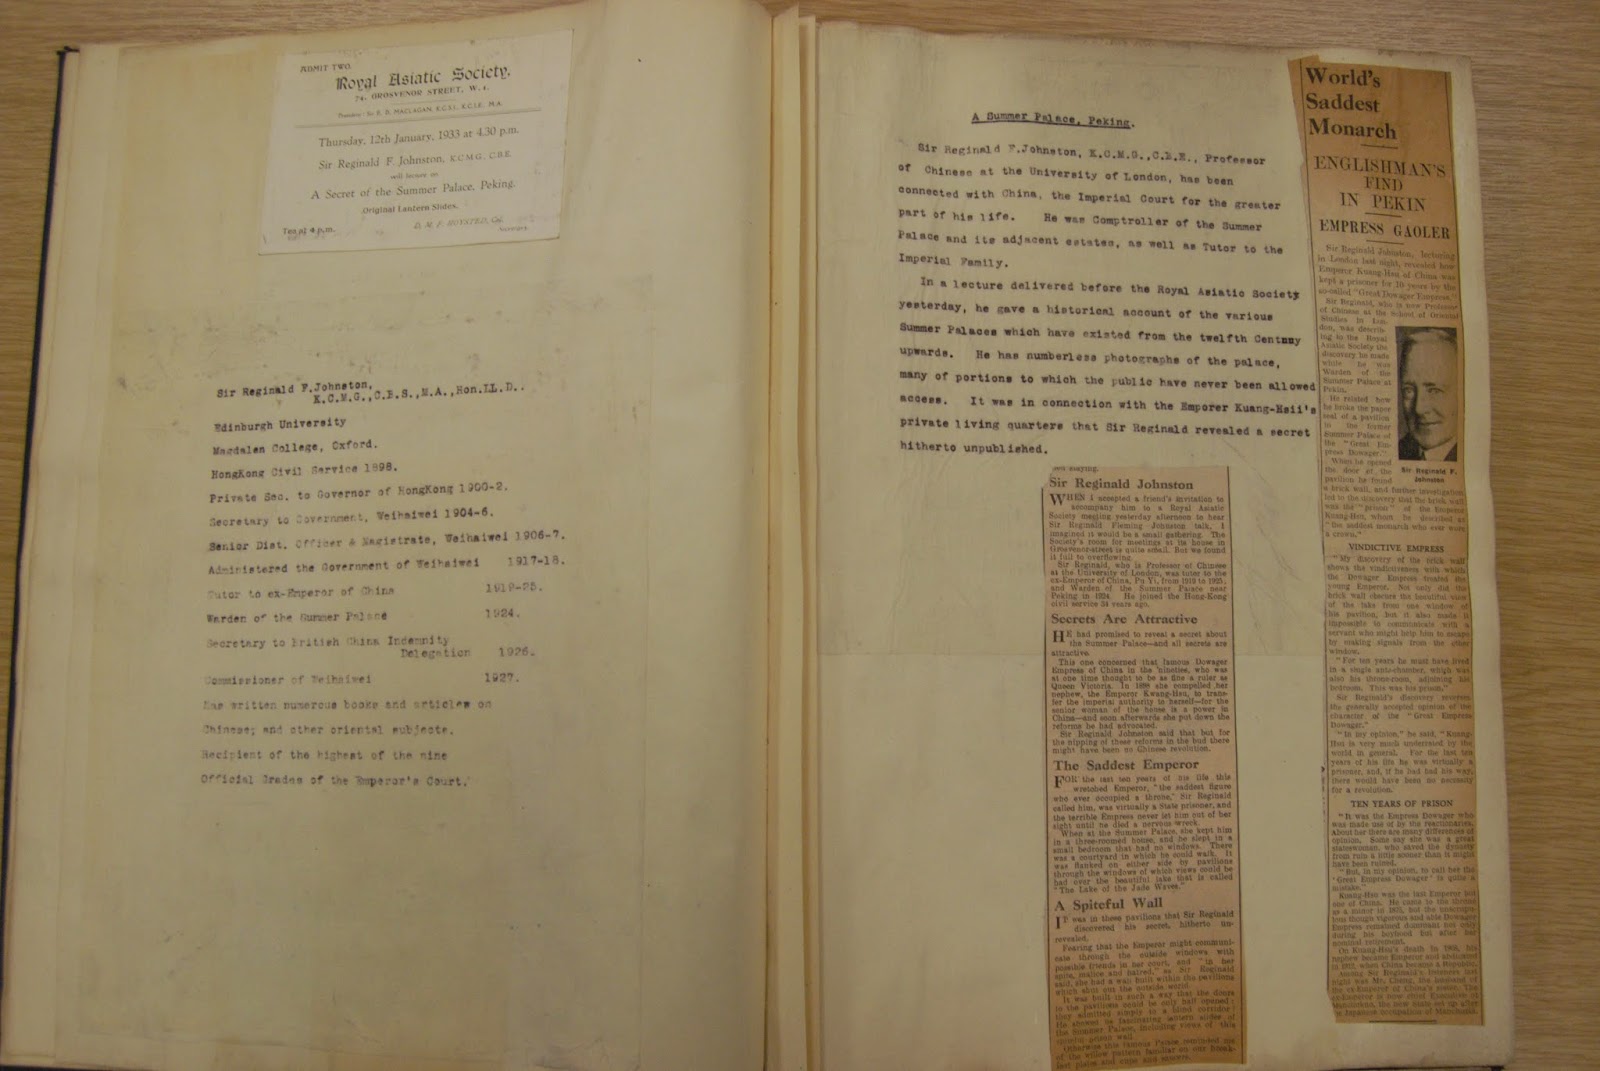 ADMIT TWO.
Royal Asiatic Society.
74, GROSVENOR STREET, W.1.
President: Sir E. D. MACLAGAN, K.C.S.I., K.C.I.E., M.A.
Thursday, 12th January, 1933 at 4.30 p.m.
Sir Reginald F Johnston, K.C.M.G., C.B.E.
will lecture on
A Secret of the Summer Palace, Peking.
Original Lantern Slides.
Tea at 4 p.m.
Secretary.
Sir Reginald F.Johnston,
K.C.M.G.,C.B.S.,M.A.,Hon.LL.D..
Edinburgh University
Magdalen College, Oxford.
HongKong Civil Service 1898.
Private Sec. to Governor of HongKong 1900-2.
Secretary to Government, Weihaiwei 1904-6.
Senior Dist. Officer & Magistrate, Weihaiwei 1906-7.
Administered the Government of Weihaiwei 1917-18.
Tutor to ex-Emperor of China 1919-25.
Warden of the Summer Palace 1924.
Secretary to British China Indemnity
Delegation 1926.
Commissioner of Weihaiwei 1927.
Has written numerous books and articles on
Chinese; and other oriental subjects.
Recipient of the highest of the nine
Official Grades of the Emperor's Court.
A Summer Palace, Peking.
Sir Reginald F.Johnston, K.C.M.G.,C.B.E., Professor
of Chinese at the University of London, has been
connected with China, the Imperial Court for the greater
part of his life. He was Comptroller of the Summer
Palace and its adjacent estates, as well as Tutor to the
Imperial Family.
In a lecture delivered before the Royal Asiatic Society
yesterday, he gave a historical account of the various
Summer Palaces which have existed from the twelfth Centnny
upwards. He has numberless photographs of the palace,
many of portions to which the public have never been allowed
access. It was in connection with the Emporer Kuang-Hsii's
private living quarters that Sir Reginald revealed a secret
hitherto unpublished.
Sir Reginald Johnston
WHEN I accepted a friend's invitation to
accompany him to a Royal Asiatic
Society meeting yesterday afternoon to hear
Sir Reginald Fleming Johnston talk, I
imagined it would be a small gathering. The
Society's room for meetings at its house in
Grosvenor-street is quite small. But we found
it full to overflowing.
Sir Reginald, who is Professor of Chinese
at the University of London, was tutor to the
ex-Emperor of China, Pu Yi, from 1919 to 1925,
and Warden of the Summer Palace near
Peking in 1924. He joined the Hong-Kong
civil service 34 years ago.
Secrets Are Attractive
HE had promised to reveal a secret about
the Summer Palace—and all secrets are
attractive.
This one concerned that famous Dowager
Empress of China in the 'nineties, who was
at one time thought to be as fine a ruler as
Queen Victoria. In 1898 she compelled her
nephew, the Emperor Kwang-Hsu, to trans-
fer the imperial authority to herself—for the
senior woman of the house is a power in
China—and soon afterwards she put down the
reforms he had advocated.
Sir Reginald Johnston said that but for
the nipping of these reforms in the bud there
might have been no Chinese revolution.
The Saddest Emperor
FOR the last ten years of his life this
wretched Emperor, "the saddest figure
who ever occupied a throne," Sir Reginald
called him, was virtually a State prisoner, and
the terrible Empress never let him out of her
sight until he died a nervous wreck.
When at the Summer Palace, she kept him
in a three-roomed house, and he slept in a
small bedroom that had no windows. There
was a courtyard in which he could walk. It
was flanked on either side by pavilions
through the windows of which views could be
had over the beautiful lake that is called
"The Lake of the Jade Waves."
A Spiteful Wall
IT was in these pavilions that Sir Reginald
discovered his secret, hitherto un-
revealed.
Fearing that the Emperor might communi-
cate through the outside windows with
possible friends in her court, and "in her
spite, malice and hatred," as Sir Reginald
said, she had a wall built within the pavilions
which shut out the outside world.
It was built in such a way that the doors
to the pavilions could be only half opened;
they admitted simply to a blind corridor.
He showed us fascinating lantern slides of
the Summer Palace, including views of this
prison wall.
Otherwise this famous Palace reminded me
of the willow pattern familiar on our break-
fast plates and cups and saucers.
World's
Saddest
Monarch
ENGLISHMAN'S
FIND
IN PEKIN
EMPRESS GAOLER
Sir Reginald Johnston, lecturing
in London last night, revealed how
Emperor Kuang-Hsu of China was
kept a prisoner for 10 years by the
so-called "Great Dowager Empress."
Sir Reginald, who is now Professor
of Chinese at the School of Oriental
Studies in Lon-
don, was describ-
ing to the Royal
Asiatic Society the
discovery he made
while he was
Warden of the
Summer Palace at
Pekin.
He related how
he broke the paper
seal of a pavilion
in the former
Summer Palace of
the "Great Em-
press Dowager."
When he opened
the door of the
pavilion he found
Sir Reginald F.
Johnston
a brick wall, and further investigation
led to the discovery that the brick wall
was the "prison" of the Emperor
Kuang-Hsu, whom he described as
"the saddest monarch who ever wore
a crown."
VINDICTIVE EMPRESS
"My discovery of the brick wall
shows the vindictiveness with which
the Dowager Empress treated the
young Emperor. Not only did the
brick wall obscure the beautiful view
of the lake from one window of
his pavilion, but it also made it
impossible to communicate with a
servant who might help him to escape
by making signals from the other
window.
"For ten years he must have lived
in a single ante-chamber, which was
also his throne-room, adjoining his
bedroom. This was his prison."
Sir Reginald's discovery reverses
the generally accepted opinion of the
character of the "Great Empress
Dowager."
"In my opinion," he said, "Kuang-
Hsu is very much underrated by the
world in general. For the last ten
years of his life he was virtually a
prisoner, and, if he had had his way,
there would have been no necessity
for a revolution.
TEN YEARS OF PRISON
"It was the Empress Dowager who
was made use of by the reactionaries.
About her there are many differences of
opinion. Some say she was a great
stateswoman, who saved the dynasty
from ruin a little sooner than it might
have been ruined.
"But, in my opinion, to call her the
'Great Empress Dowager' is quite a
mistake."
Kuang-Hsu was the last Emperor but
one of China. He came to the throne
as a minor in 1875, but the unscrupu-
lous though vigorous and able Dowager
Empress remained dominant not only
during his boyhood but after her
nominal retirement.
On Kuang-Hsu's death in 1908, his
nephew became Emperor and abdicated
in 1912, when China became a Republic.
Among Sir Reginald's listeners last
night was Mr. Cheng, the husband of
the ex-Emperor of China's sister. The
ex-Emperor is now chief Executive of
the new State set up after
the Japanese occupation of Manchuria.